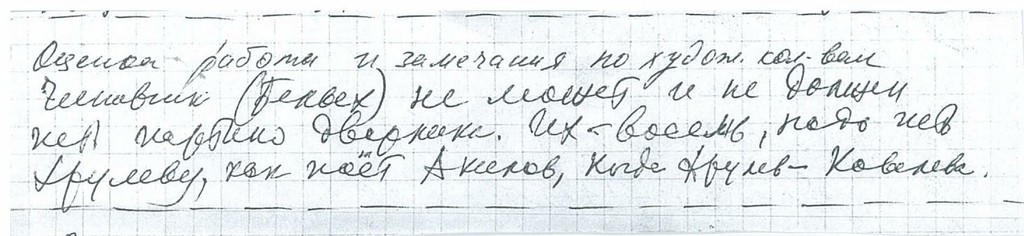 Оценка работы и замечания по худож. кол-вам
Чиновник (Беньех) не может и не должен
петь партию дворника. Их – восемь, надо петь
Хрулеву, как поёт Акилов, когда Хрулев – Ковалева.